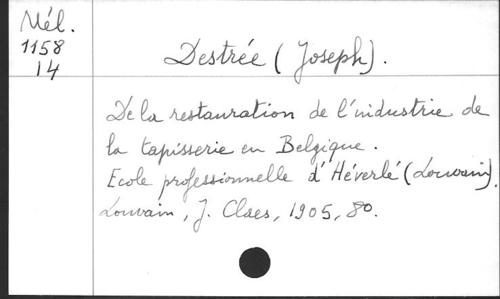 Mél.
1158
14
Destrée (Joseph).
De la restauration de l'industrie de
la tapisserie en Belgique.
Ecole professionnelle d'Héverlé (Louvain).
Louvain, J. Claes, 1905, 8o.